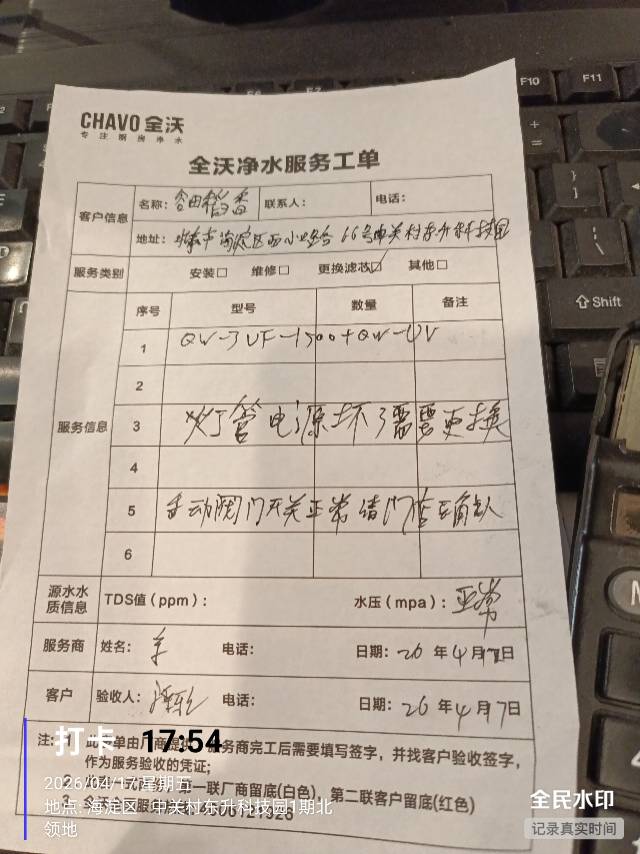 CHAVO 全沃
专注厨房净水
全沃净水服务工单
客户信息
名称: 谷田稻香
联系人:
电话:
地址: 北京市海淀区西小口路66号中关村东升科技园
服务类别
安装□ 维修□ 更换滤芯☑ 其他□
服务信息
序号 型号 数量 备注
1 QW-3UF-1500+QW-UV
2
3 灯管电源坏了需要更换
4
5 手动阀门开关正常请门店确认
6
源水水质信息
TDS值(ppm): 水压(mpa): 正常
服务商 姓名: 电话: 日期: 26年4月17日
客户 验收人: 电话: 日期: 26年4月7日
注:
务商完工后需要填写签字,并找客户验收签字,
作为服务验收的凭证;
一联厂商留底(白色),第二联客户留底(红色)
打卡 17:54
2026/04/17 星期五
地点: 海淀区·中关村东升科技园1期北
领地
全民水印
记录真实时间
F10
F11
Shift